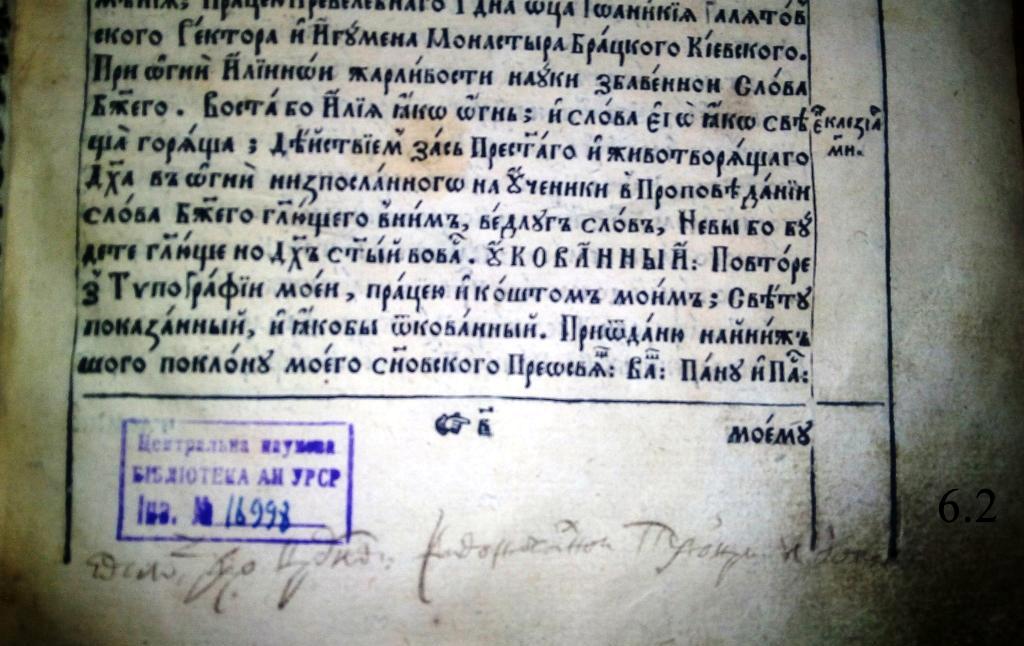 Працею Превелебнаго Гдна ѿца Іѡаникїа Галѧтов
ского Ге́ктора и҆ И҆гꙋ́мена Монастырѧ Бра́цкого Кі́евского.
При ѻ҆гнѝ И҆лїиннѡй жарли́вости наꙋ́ки збаве́нной Сло́ва
Бж҃его. Воста̀ бо И҆лїѧ ꙗ҆́кѡ ѻ҆́гнь; и҆ слова є҆гѡ̀ ꙗ҆́кѡ свѣ
ща̀ горѧ́ща; Дѣ́йствїем за́сь Прест҃а́го и҆ животворѧ́щаго
Дх҃а въ ѻ҆гнѝ низпосла́нного на Оу҆ченики в Проповѣ́данїи
сло́ва Бж҃его гл҃ющего в ни́мъ, ве́длꙋгъ сло́въ, Невы бо бꙋ́
дете гл҃юще но Дх҃ъ ст҃ый вова̀. Оу҆КОВА́ННЫЙ: Повто́ре
з̾ Тѵпогра́фїи моєи, пра́цею и҆ ко́штомъ мои́мъ; Свѣ́тꙋ
показа́нный, и҆ ꙗ҆кобы ѿкова́нный. Приѿда́ню найни́жъ
шого покло́нꙋ моего сн҃овского Преѡсвѧ: Ва: Па́нꙋ и҆ Па:
є҆клезїа
ми.
☞ в҃
мое́мꙋ
Центральна наукова
БІБЛІОТЕКА АН УРСР
Інв. № 16998
6.2